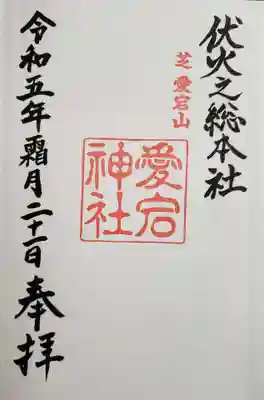 伏火之総本社
芝愛宕山
愛宕
神社
令和五年霜月二十一日奉拝